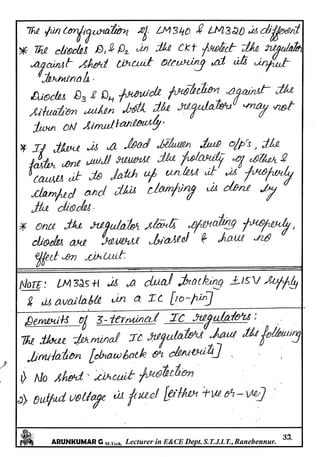 The pin configuration of LM340 & LM320 is different
* The diodes D1 & D2 in the CKt protect the regulator
against short circuit occuring at its input
terminals.
Diodes D3 & D4 provide protection against the
situation when both the regulators may not
turn ON Simultaneously.
* If there is a load between two o/p's, the
faster one will reverse the polarity of other &
causes it to latch up unless it is properly
clamped and this clamping is done by
the diodes.
* once the regulator starts operating properly,
diodes are reverse biased & have no
effect on circuit.
NOTE: LM325H is a dual tracking ±15V supply
& is available in a IC [10-pin]
Demerits of 3-terminal IC regulators:
The three terminal IC regulators have the following
limitation [drawback or demerits]
1) No short circuit protection
2) output voltage is fixed [either +ve or -ve]
ARUNKUMAR G M.Tech, Lecturer in E&CE Dept. S.T.J.I.T., Ranebennur. 32